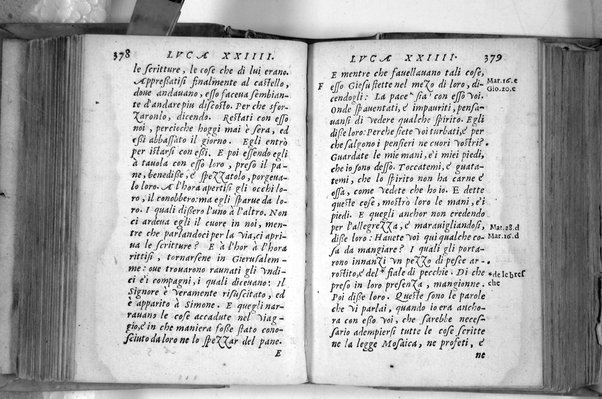 378
LVCA XXIIII.
le scritture, le cose che di lui erano.
Appressatisi finalmente al castello,
doue andauano, esso faceua sembian-
te d'andare piu discosto. Per che sfor-
zaronlo, dicendo. Restati con esso
noi, percioche hoggi mai è sera, ed
essi abbassato il giorno. Egli entrò
per istarsi con essi. E poi essendo egli
à tauola con esso loro, preso il pa-
ne, benedisse, e spezzatolo, porgeua-
lo loro. A l'hora apertisi gli occhi lo-
ro, il conobbero: ma egli sparue da lo-
ro. I quali dissero l'uno à l'altro. Non
ci ardeua egli il cuore in noi, men-
tre che parlandoci per la via, ci apri-
ua le scritture? E à l'hor à l'hora
rittisi, tornarsene in Gierusalem-
me: oue trouarono raunati gli vndi-
ci e i compagni, i quali diceuano: Il
Signore è veramente risuscitato, ed
è apparito à Simone. E quegli nar-
rauano le cose accadute nel viag-
gio, e in che maniera fosse stato cono-
sciuto da loro ne lo spezzar del pane.
E
LVCA XXIIII.
379
E mentre che fauellauano tali cose,
F esso Giesu stette nel mezo di loro, di-
cendogli: La pace sia con esso voi.
Onde spauentati, e impauriti, pensa-
uansi di vedere qualche spirito. Egli
disse loro: Perche siete voi turbati, e per
che salgono i pensieri ne cuori vostri?
Guardate le mie mani, e i miei piedi,
che io sono desso. Toccatemi, e guata-
temi, che lo spirito non ha carne e
ossa, come vedete che ho io. E dette
queste cose, mostrò loro le mani, e i
piedi. E quegli anchor non credendo
per l'allegrezza, e marauigliandosi,
disse loro: Hauete voi qui qualche co-
sa da mangiare? I quali gli porta-
rono innanzi vn pezzo di pesce ar-
rostito, e del * fiale di pecchie. Di che
preso in loro presenza, mangionne.
Poi disse loro. Queste sono le parole
che vi parlai, quando io era ancho-
ra con esso voi, che sarebbe neces-
sario adempiersi tutte le cose scritte
ne la legge Mosaica, ne profeti, e
ne
Mar. 16. c
Gio. 20. c
Mat. 28. d
Mar. 16. d
* de le bres
che